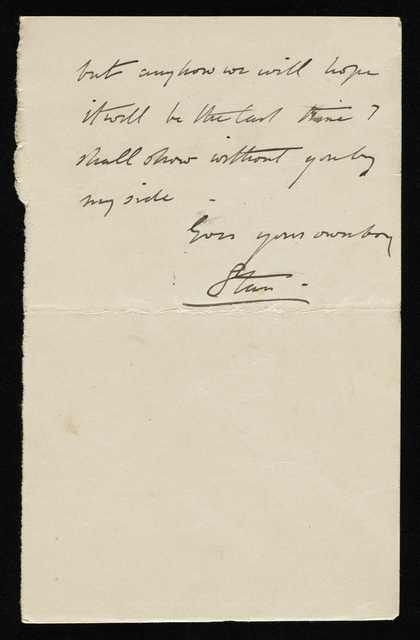 but anyhow we will hope
it will be the last time I
shall show without you by
my side -
Ever your own boy
Stan -